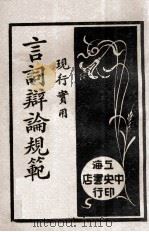 現行實用
言詞辯論規範
上海中央書店印行